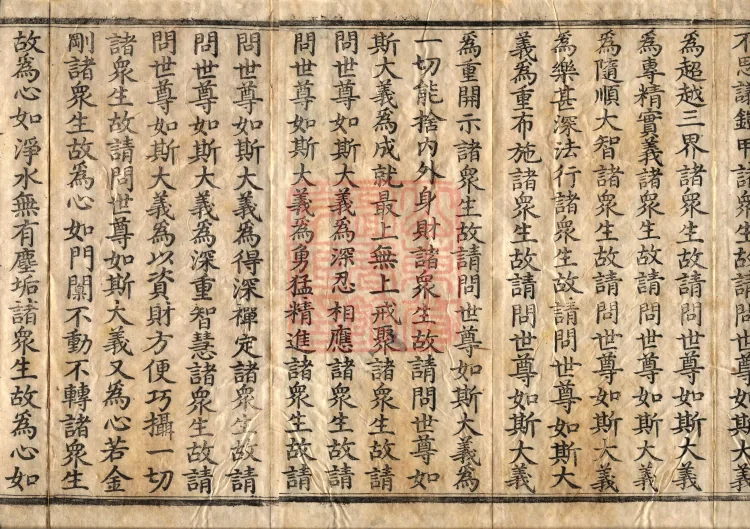 不思議鎧甲諸
為超越三界諸眾生故請問世尊如斯大義
為專精實義諸眾生故請問世尊如斯大義
為隨順大智諸眾生故請問世尊如斯大義
為樂甚深法行諸眾生故請問世尊如斯大
義為重布施諸眾生故請問世尊如斯大義
為重開示諸眾生故請問世尊如斯大義為
一切能捨內外身財諸眾生故請問世尊如
斯大義為成就最上無上戒聚諸眾生故請
問世尊如斯大義為深忍相應諸眾生故請
問世尊如斯大義為勇猛精進諸眾生故請
問世尊如斯大義為得深禪定諸眾生故請
問世尊如斯大義為深重智慧諸眾生故請
問世尊如斯大義為以資財方便巧攝一切
諸眾生故請問世尊如斯大義又為心若金
剛諸眾生故為心如門閫不動不轉諸眾生
故為心如淨水無有塵垢諸眾生故為心如